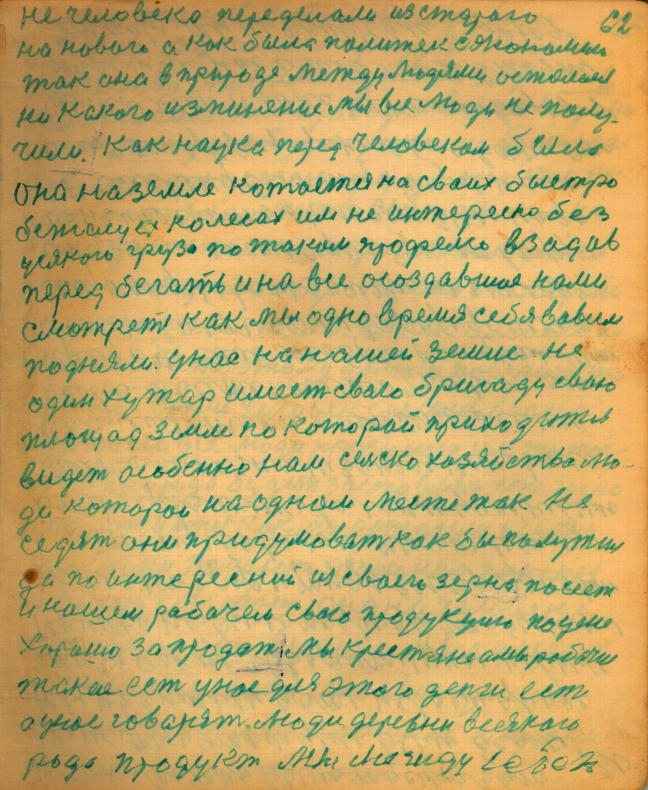 62
не человека переделали из старого
на нового а как была политек с экономии
так она в природе между людями осталася
ни какого изминение мы все люди не полу-
чили. Как наука перед человеком была
она на земле котается на своих быстро
бегающих колесах им не интересно без
усякого груза по таком профелю взадав
перед бегать и на все осоздавшое нами
смотреть как мы одно время себя вовим
подняли. унас на нашей земле не
один хутар имеет сваго бригаду сваю
площад земле по которой приходится
видет особенно нам селско хозяйства лю-
ди которои на одном месте так не
седят они придумоват как бы получит
да по интересней из своего зерна посеет
и нашем рабочем сваю продукцию поцене
хорошо запродат мы крестяне а мы рабочи
такие ест унас для этого денги ест
а унас говарят люди деревни всеякого
рода продукт мы между собой